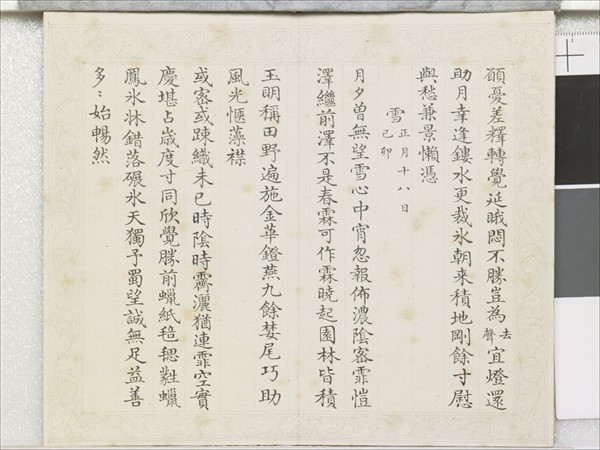 願憂差釋轉覺延眺悶不勝豈為去聲宜燈還
助月幸逢鏤水更裁氷朝來積地剛餘寸慰
與愁兼景懶憑
雪正月十八日己卯
月夕曽無望雪心中宵忽報佈濃陰密霏愷
澤繼前澤不是春霖可作霖曉起園林皆積
玉明稱田野遍施金華鐙燕九餘婪尾巧助
風光愜藻襟
或密或踈織未已時陰時霽灑猶連霏空實
慶堪占歲度寸同欣覺勝前蠟紙毰毸黏蠟
鳳氷牀錯落碾氷天獨予蜀望誠無足益善
多〻始暢然